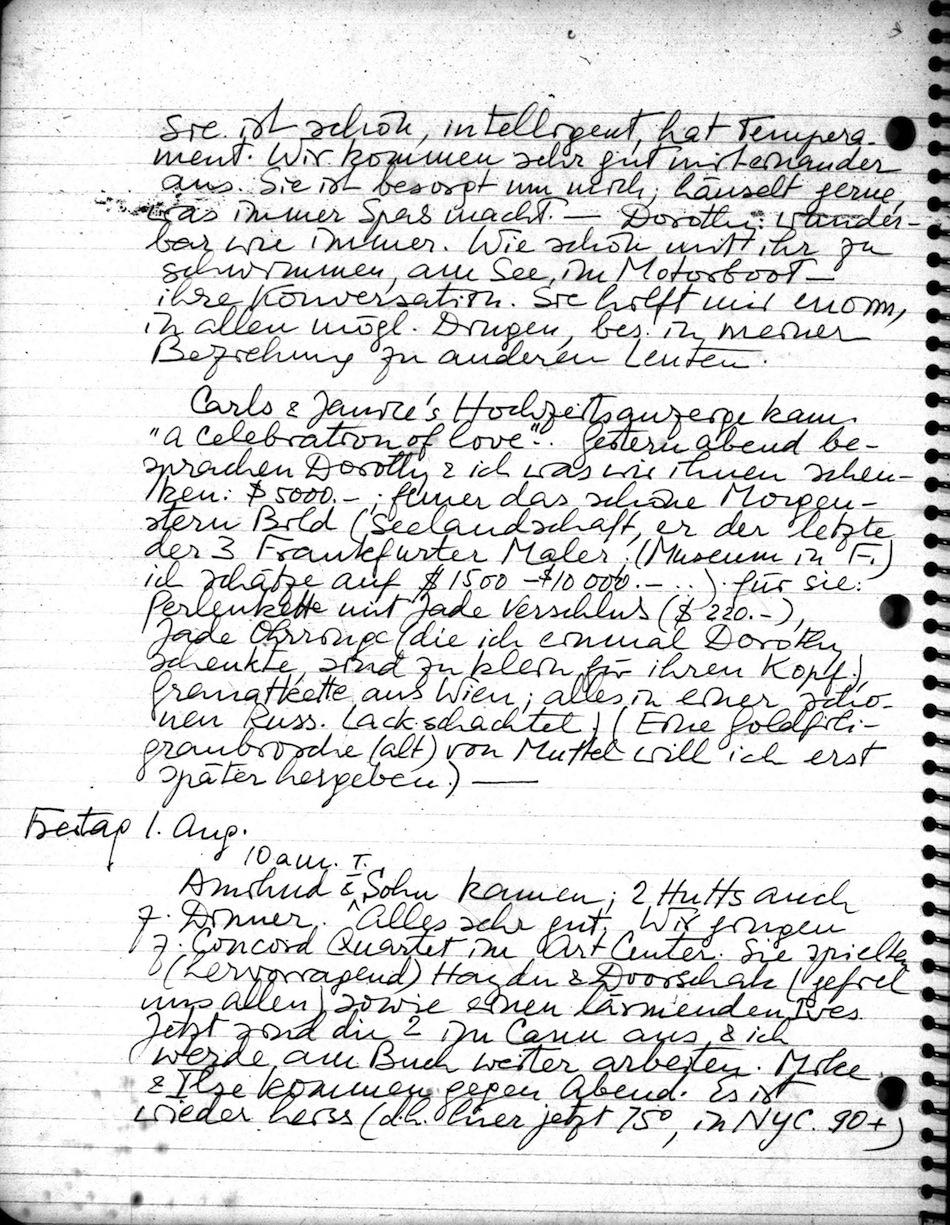 Sie ist schön, intelligent, hat Tempera-
ment. Wir kommen sehr gut miteinander
aus. Sie ist besorgt um mich, hänselt gerne,
was immer Spas macht. — Dorothy: wunder-
bar wie immer. Wie schön mit ihr zu
schwimmen, am See, im Motorboot —
ihre Konversation. Sie hilft mir enorm,
in allen mögl. Dingen, bes. in meiner
Beziehung zu anderen Leuten.
Carls & Janice's Hochzeitsanzeige kam
"a celebration of love". Gestern abend be-
sprachen Dorothy & ich was wir ihnen schen-
ken: $5000.-; ferner das schöne Morgen-
stern Bild (Seelandschaft, er der letzte
der 3 Frankfurter Maler (Museum in F.)
ich schätze auf $1500 - $10 000.- ...) für sie:
Perlenkette mit Jade Verschlus ($220.-),
Jade Ohrringe (die ich einmal Dorothy
schenkte, sind zu klein für ihren Kopf),
Granatkette aus Wien; alles in einer schö-
nen Russ. Lackschachtel) (Eine Goldfili-
granbrosche (alt) von Muttel will ich erst
später hergeben.) —
Freitag 1. Aug.
10 am. T.
& Sohn kamen; 2 Hutts auch
z. Dinner. Alles sehr gut, Wir gingen
z. Concord Quartet im Art Center. Sie spielten
(hervorragend) Haydn & Dvorschak (gefiel
uns allen) sowie einen lärmenden Ives
Jetzt sind die 2 im Canu aus, & ich
werde am Buch weiter arbeiten. Mike
& Ilse kommen gegen Abend. Es ist
wieder heiss (d.h. hier jetzt 75°, in NYC. 90+)